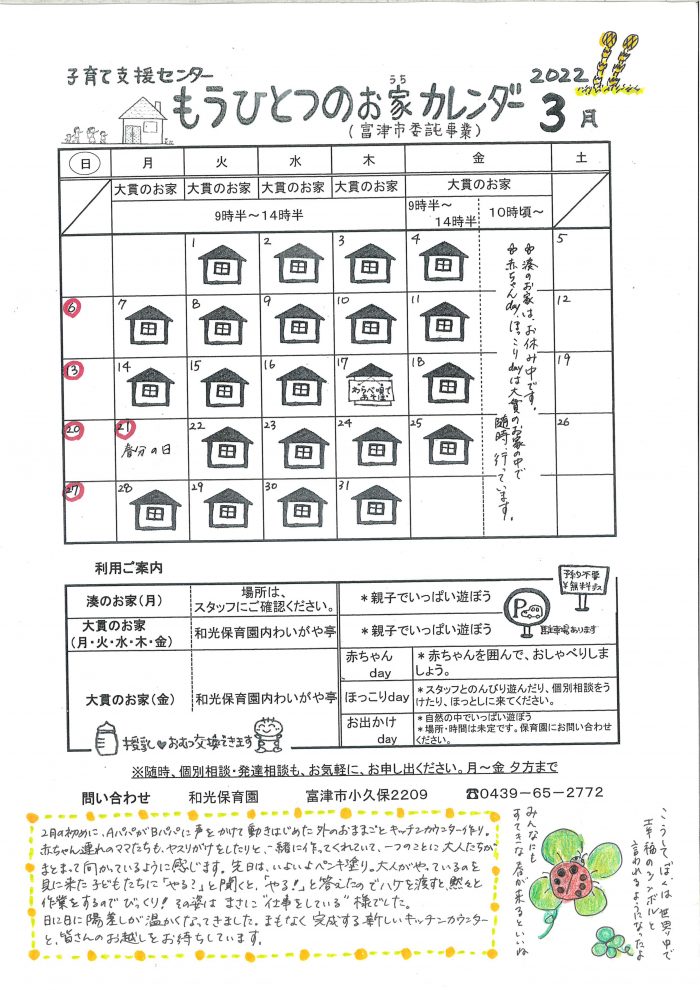 子育て支援センター
もうひとつのお家カレンダー
うち
(富津市委託事業)
2022
3月
日 月 火 水 木 金 土
大貫のお家 大貫のお家 大貫のお家 大貫のお家 大貫のお家
9時半～14時半
9時半～14時半
10時頃～
1 2 3 4 5
6 7 8 9 10 11 12
13 14 15 16 17 18 19
わらべ唄であそぼ
20 21 22 23 24 25 26
春分の日
27 28 29 30 31
湊のお家は、お休み中です。
赤ちゃんday、ほっこりdayは大貫のお家の中で
随時、行っています。
利用ご案内
湊のお家(月)
場所は、
スタッフにご確認ください。
＊親子でいっぱい遊ぼう
大貫のお家
(月・火・水・木・金)
和光保育園内わいがや亭
＊親子でいっぱい遊ぼう
予約不要
¥無料デス
P
駐車場あります
大貫のお家(金)
和光保育園内わいがや亭
赤ちゃん
day
＊赤ちゃんを囲んで、おしゃべりしま
しょう。
ほっこりday
＊スタッフとのんびり遊んだり、個別相談をう
けたり、ほっとしに来てください。
お出かけ
day
＊自然の中でいっぱい遊ぼう
＊場所・時間は未定です。保育園にお問い合わせ
ください。
授乳♥おむつ交換できます
※随時、個別相談・発達相談も、お気軽に、お申し出ください。月～金 夕方まで
問い合わせ 和光保育園 富津市小久保2209 ☎0439-65-2772
2月の初めに、AパパがBパパに声をかけて動きはじめた外のおままごとキッチンカウンター作り。
赤ちゃん連れのママたちも、ヤスリがけをしたりと、一緒に作ってくれていて、一つのことに大人たちが
まとまって向かっているように感じます。先日は、いよいよペンキ塗り。大人がやっているのを
見に来た子どもたちに「やる？」と聞くと、「やる！」と答えたのでハケを渡すと、黙々と
作業をするのでびっくり！その姿はまさに“仕事をしている”様でした。
日に日に陽差しが温かくなってきました。まもなく完成する新しいキッチンカウンター
と、皆さんのお越しをお待ちしています。
こうしてぼくは世界中で
幸福のシンボルと
言われるようになったよ
みんなにも
すてきな春が来るといいね